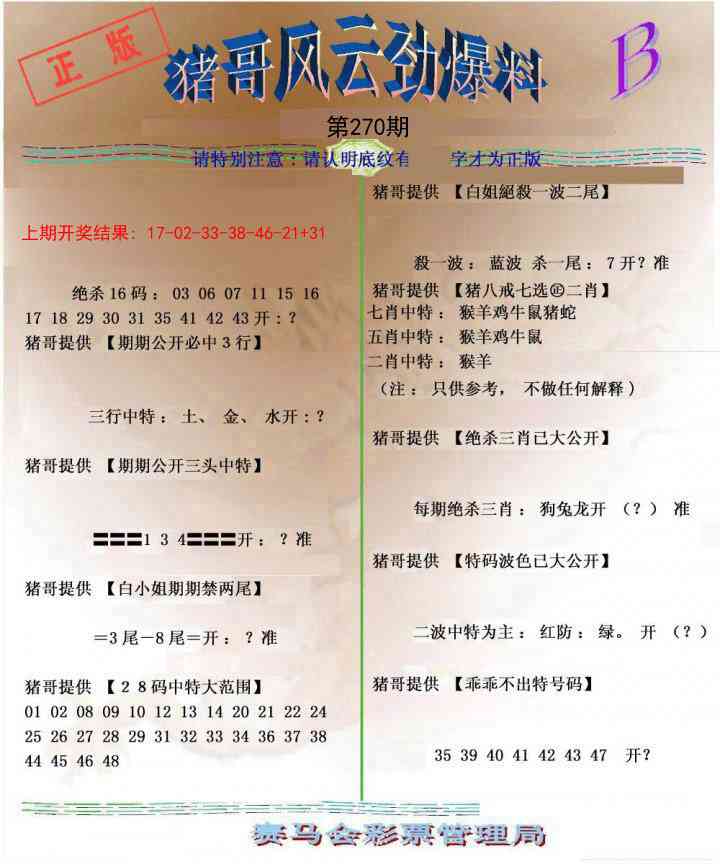 正版
猪哥风云劲爆料
B
第270期
请特别注意：请认明底纹有 字才为正版
上期开奖结果：17-02-33-38-46-21+31
绝杀16码：03 06 07 11 15 16
17 18 29 30 31 35 41 42 43开:？
猪哥提供 【期期公开必中3行】
三行中特：土、金、水开:？
猪哥提供 【期期公开三头中特】
〓〓〓1 3 4〓〓〓开：？准
猪哥提供 【白小姐期期禁两尾】
＝3尾－8尾＝开：？准
猪哥提供 【２８码中特大范围】
01 02 08 09 10 12 13 14 20 21 22 24
25 26 27 28 29 31 32 33 34 36 37 38
44 45 46 48
猪哥提供 【白姐絕殺一波二尾】
殺一波：蓝波 杀一尾：7开？准
猪哥提供 【猪八戒七选㊣二肖】
七肖中特：猴羊鸡牛鼠猪蛇
五肖中特：猴羊鸡牛鼠
二肖中特：猴羊
（注：只供参考，不做任何解释）
猪哥提供 【绝杀三肖已大公开】
每期绝杀三肖：狗兔龙开（？）准
猪哥提供 【特码波色已大公开】
二波中特为主：红防：绿。开（？）
猪哥提供 【乖乖不出特号码】
35 39 40 41 42 43 47 开?
赛马会彩票管理局